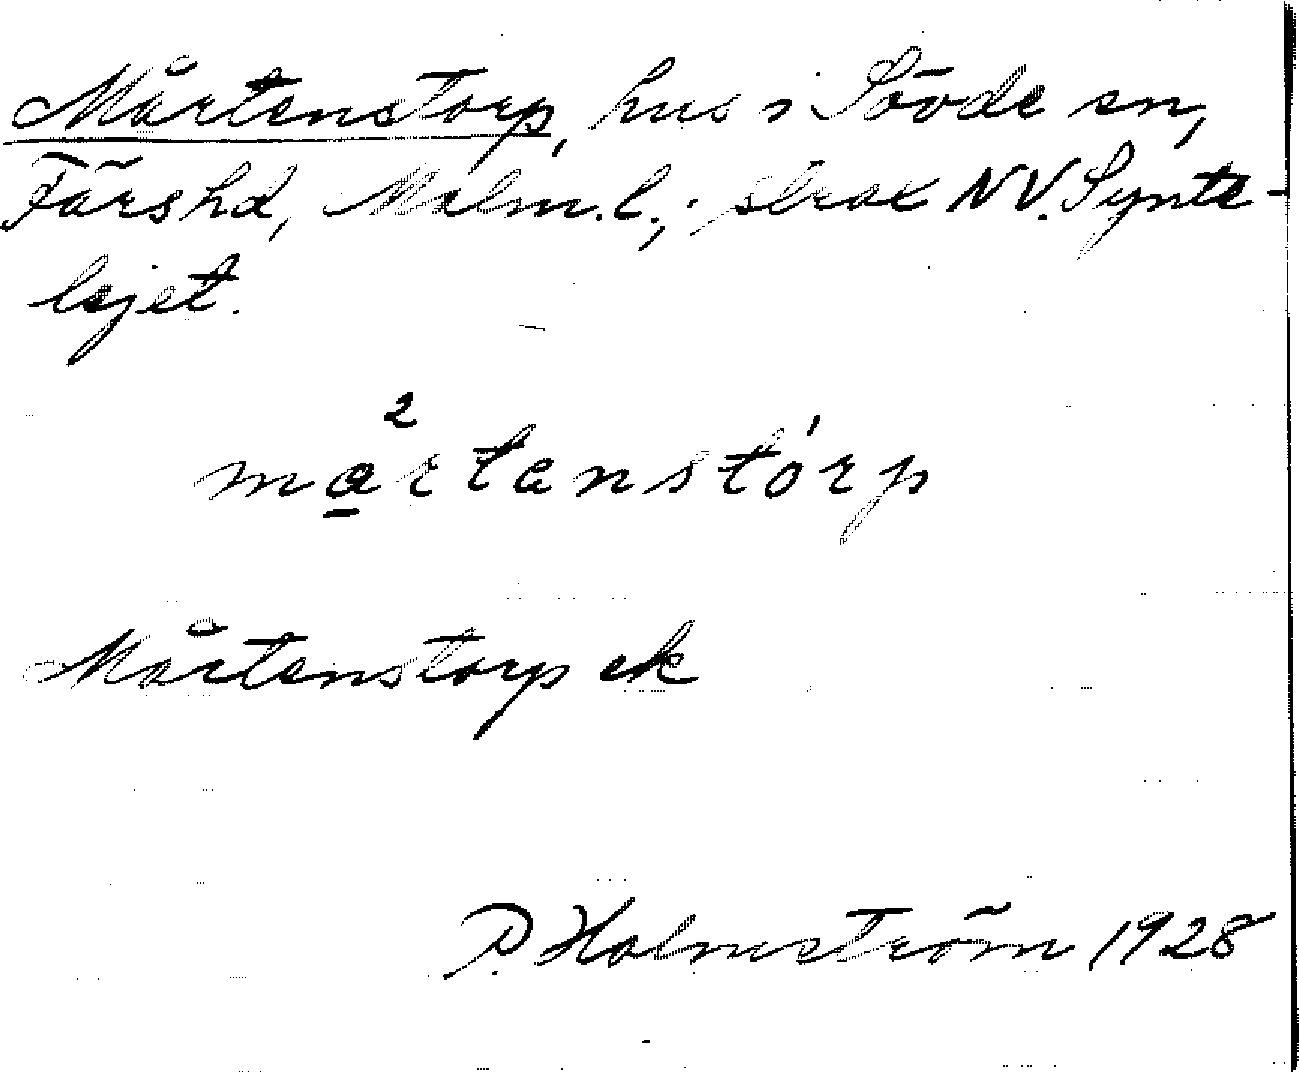 Mårtenstorp, hus i Sövde sn,
Färs hd, Malm. l.; strax NV. Synte-
lejet.
2
mårtenstórp
Mårtenstorp ek
P. Holmström 1928